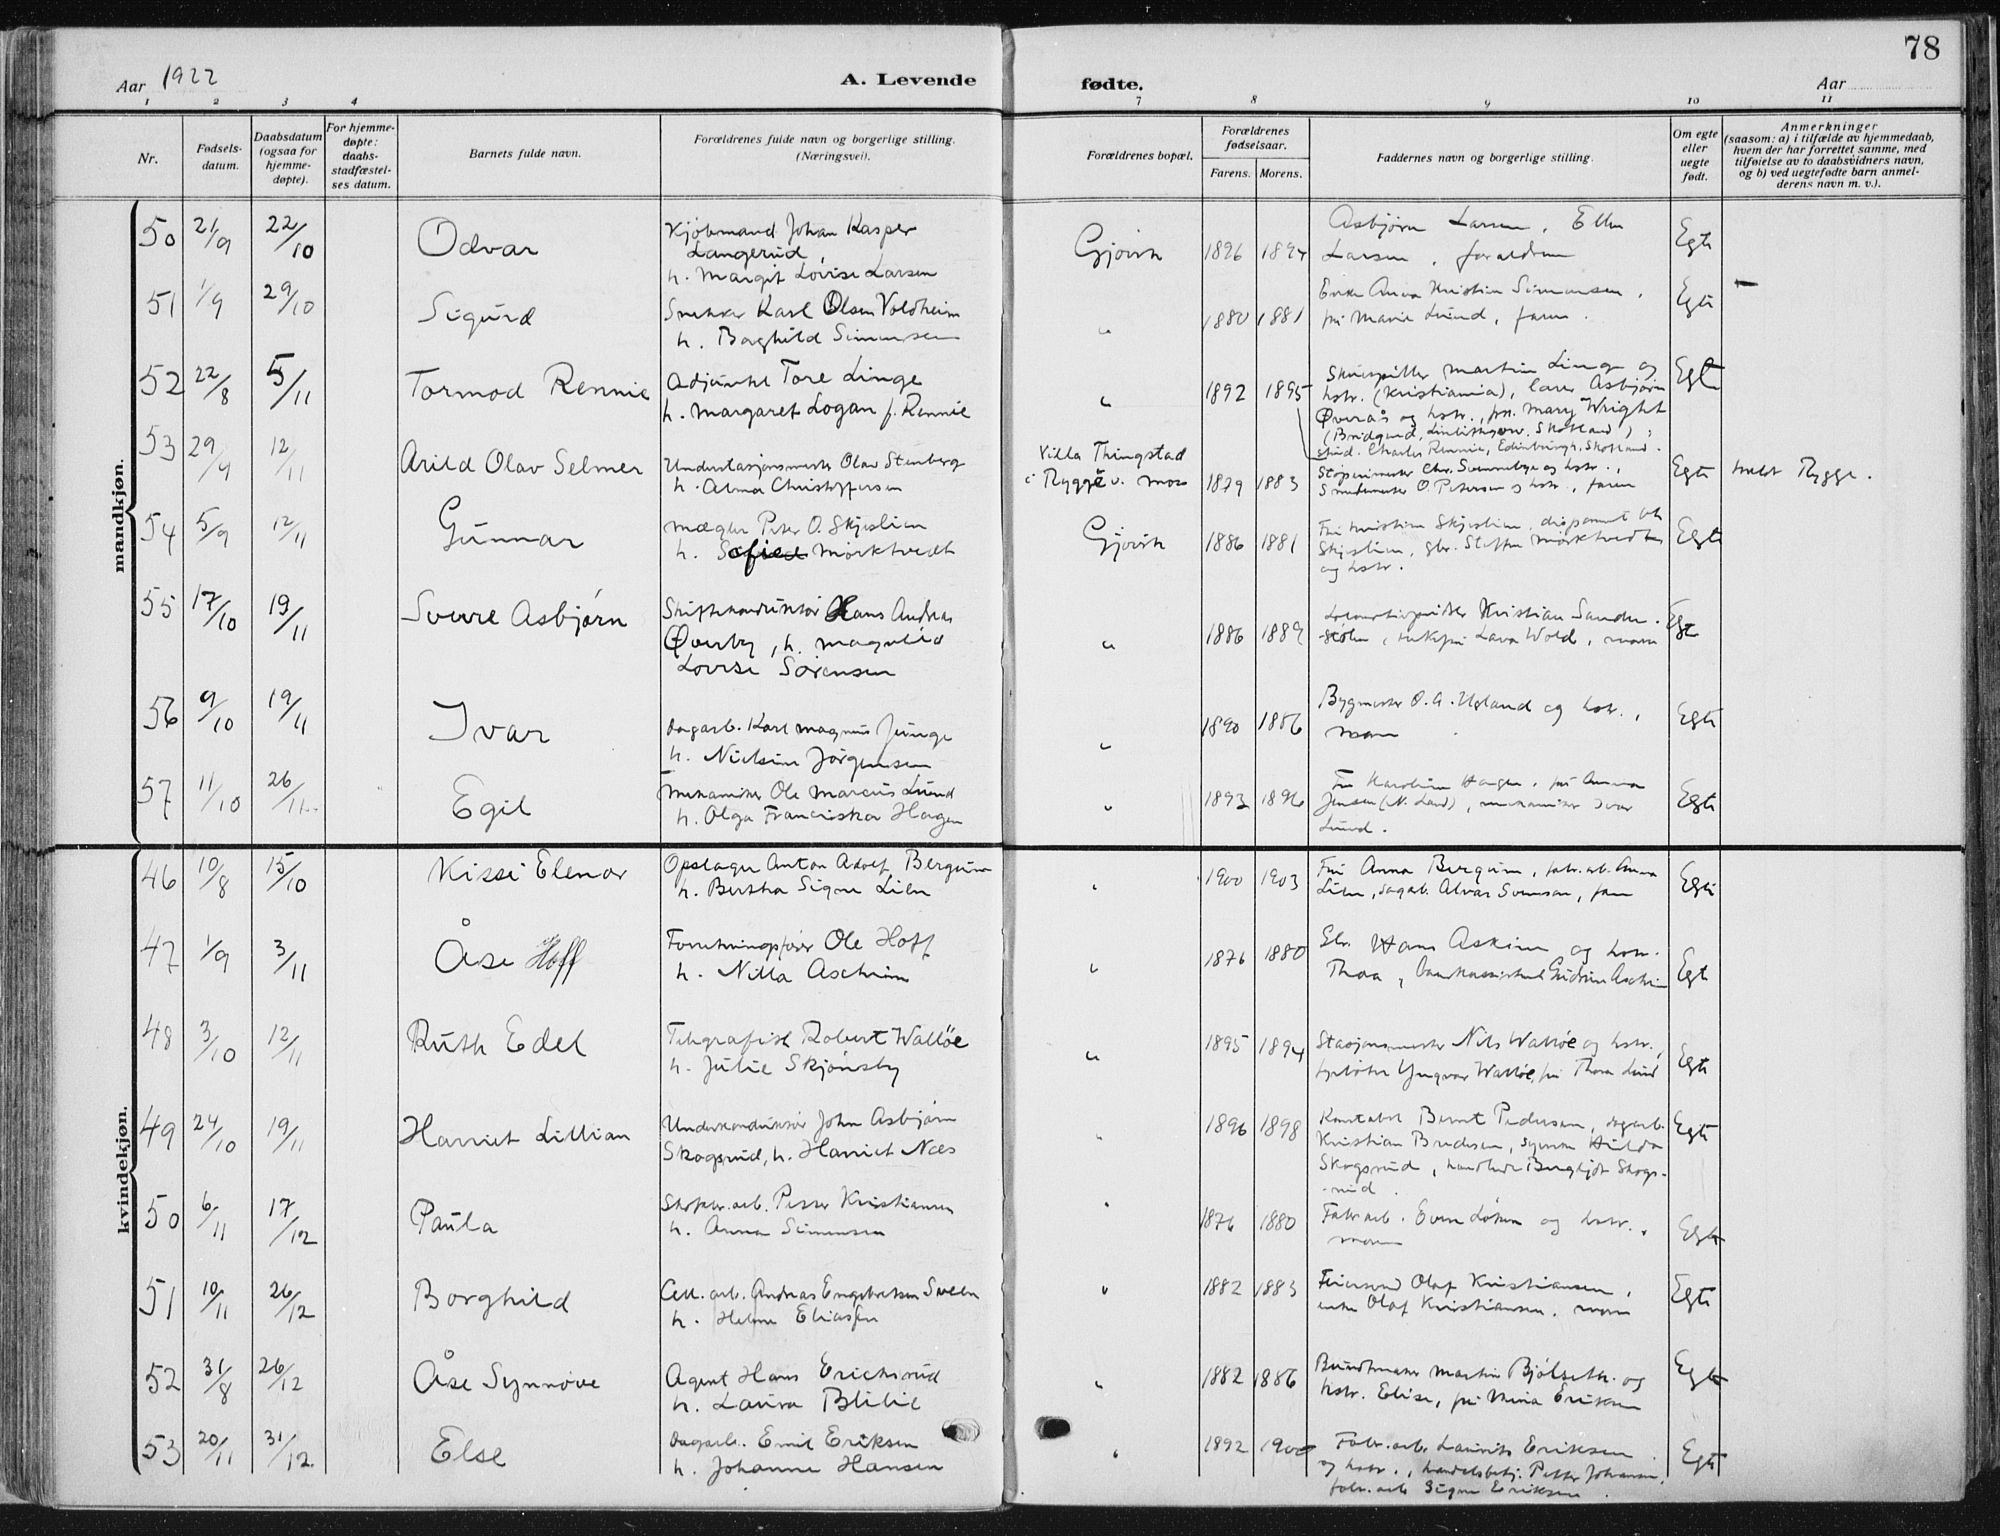 78
Aar 1922
A. Levende fødte.
Aar
1 2 3 4 7 8 9 10 11
Nr.
Fødsels-
datum.
Daabsdatum
(ogsaa for
hjemme-
døpte).
For hjemme-
døpte:
daabs-
stadfæstel-
ses datum.
Barnets fulde navn.
Forældrenes fulde navn og borgerlige stilling.
(Næringsvei).
Forældrenes bopæl.
Forældrenes
fødselsaar.
Farens. Morens.
Faddernes navn og borgerlige stilling.
Om egte
eller
uegte
født.
Anmerkninger
(saasom: a) i tilfælde av hjemmedaab,
hvem der har forrettet samme, med
tilføielse av to daabsvidners navn,
og b) ved uegtefødte barn anmel-
derens navn m. v.).
mandkjøn.
50 21/9 22/10 Odvar
Kjøbmand Johan Kasper
Langerud
h. Margit Lovise Larsen
Gjøvik 1896 1894
Asbjørn Larsen, Ellen
Larsen, forældrene
Egte
51 1/9 29/10 Sigurd
Snekker Karl Olsen Voldheim
h. Borghild Simensen
" 1880 1881
Enke Anna Kristine Simensen,
fru Marie Lund, faren.
Egte
52 22/8 5/11 Tormod Rennie
Adjunkt Tore Linge
h. Margaret Logan f. Rennie
" 1892 1895
Skuespiller Martin Linge og
hstr. (Kristiania), lærer Asbjørn
Øverås og hstr., frk. Mary Wright
stud. Charles Rennie, Edinburgh, Skotland.
Egte
53 29/9 12/11 Arild Olav Selmer
Olav Stenberg
h. Alma Christoffersen
Villa Thingstad
i Rygge v. Moss 1879 1883
Støperimester Chr. og hstr.,
Smedmester O. Petersen og hstr., faren
Egte meldt Rygge.
54 5/9 12/11 Gunnar
Mægler Peter O. Skjeslien
h. Sofie Mørktvedt
Gjøvik 1886 1881
Fru Kristine Skjeslien, disponent
Skjeslien, gbr. Steffen Mørktvedt
og hstr.
Egte
55 17/10 19/11 Sverre Asbjørn
Skiftekonduktør Hans Andreas
Øverby, h. Magnhild
Lovise Sørensen
" 1886 1889
Kristian
Wold, moren
Egte
56 9/10 19/11 Ivar
Dagarb. Karl Magnus Junge
h. Nielsine Jørgensen
" 1890 1886
Bygmester O. A. Ugland og hstr.,
moren
Egte
57 11/10 26/11 Egil
Mekaniker Ole Marcus Lund
h. Olga Franciska Hagen
" 1893 1896
Fru Karoline Hagen, fru Anna
Jensen (N. Land), mekaniker Ivar
Lund.
Egte
kvindekjøn.
46 10/8 15/10 Kissi Elenor
Opslager Anton Adolf Bergum
h. Bertha Signe Lien
" 1900 1903
Fru Anna Bergum, fabr.arb. Anna
Lien, dagarb. Alvar Svensen, faren
Egte
47 1/9 3/11 Åse Hoff
Forretningsfører Ole Hoff
h. Nilla Aschim
" 1876 1880
Gbr. Hans Askim og hstr.
Thea, Gudrun Aschim
Egte
48 3/10 12/11 Ruth Edel
Telegrafist Robert Walløe
h. Julie Skjønsby
" 1895 1894
Stasjonsmester Nils Walløe og hstr.,
Yngvar Walløe, fru Thora Lund
Egte
49 24/10 19/11 Harriet Lillian
Underkonduktør John Asbjørn
Skogsrud, h. Harriet Næs
" 1896 1898
Konstabel Bernt Pedersen, dagarb.
Kristian Bredesen, syerske Hulda
Skogsrud, Bergljot Skogs-
rud.
Egte
50 6/11 17/12 Paula
Petter Kristiansen
h. Anna Simensen
" 1876 1880
Fabr.arb. Even Løken og hstr.,
moren
Egte
51 10/11 26/12 Borghild
Cell.arb. Andreas Engebretsen Sveen
h. Helene Eliassen
" 1882 1883
Feiersvend Olaf Kristiansen,
enke Olaf Kristiansen, moren
Egte
52 31/8 26/12 Åse Synnøve
Agent Hans Erichsrud
h. Laura Blilie
" 1882 1886
Buntmaker Martin Bjølseth og
hstr. Elise, fru Mina Eriksen
Egte
53 20/11 31/12 Else
Dagarb. Emil Eriksen
h. Johanne Hansen
" 1892 1900
Fabr.arb. Laurits Eriksen
og hstr., handelsbetj. Petter Johansen,
fabr.arb. Signe Eriksen.
Egte